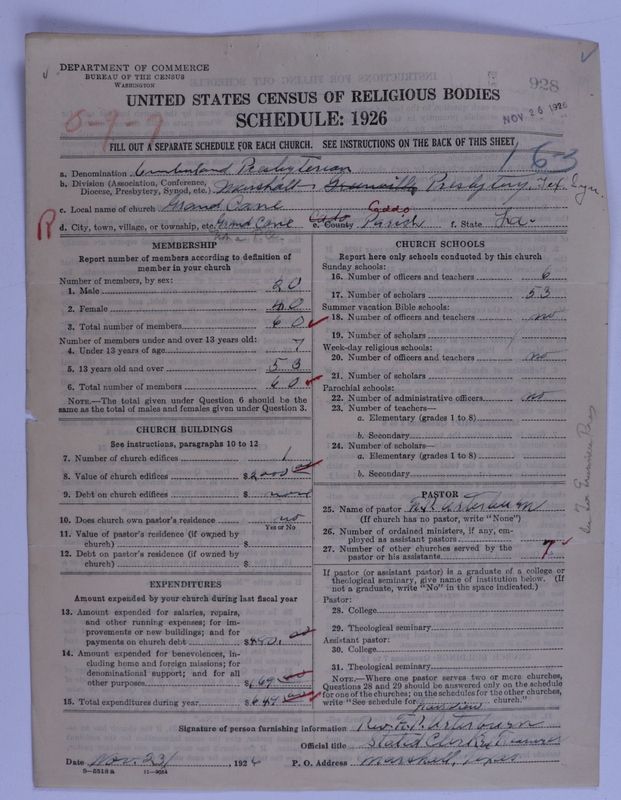 DEPARTMENT OF COMMERCE
BUREAU OF THE CENSUS
WASHINGTON
928
UNITED STATES CENSUS OF RELIGIOUS BODIES
SCHEDULE: 1926
NOV 26 1926
8-9-7
FILL OUT A SEPARATE SCHEDULE FOR EACH CHURCH. SEE INSTRUCTIONS ON THE BACK OF THIS SHEET
163
a. Denomination Cumberland Presbyterian
b. Division (Association, Conference, Diocese, Presbytery, Synod, etc.) Marshall Greenville Presbytery, Tex. Syn.
c. Local name of church Grand Cane
R
d. City, town, village, or township, etc. Grand Cane e. County Caddo Parish f. State La.
MEMBERSHIP
Report number of members according to definition of
member in your church
Number of members, by sex:
1. Male 20
2. Female 40
3. Total number of members 60
Number of members under and over 13 years old:
4. Under 13 years of age 7
5. 13 years old and over 53
6. Total number of members 60
NOTE.—The total given under Question 6 should be
same as the total of males and females given under Question 3.
CHURCH BUILDINGS
See instructions, paragraphs 10 to 12
7. Number of church edifices 1
8. Value of church edifices $2000 00
9. Debt on church edifices $ none
10. Does church own pastor's residence no
Yes or No
11. Value of pastor's residence (if owned by
church) $
12. Debt on pastor's residence (if owned by
church) $
EXPENDITURES
Amount expended by your church during last fiscal year
13. Amount expended for salaries, repairs,
and other running expenses; for im-
provements or new buildings; and for
payments on church debt $ 00
14. Amount expended for benevolences, in-
cluding home and foreign missions; for
denominational support; and for all
other purposes $169 00
15. Total expenditures during year $ 00
CHURCH SCHOOLS
Report here only schools conducted by this church
Sunday schools:
16. Number of officers and teachers 6
17. Number of scholars 53
Summer vacation Bible schools:
18. Number of officers and teachers no
19. Number of scholars
Week-day religious schools:
20. Number of officers and teachers no
21. Number of scholars
Parochial schools:
22. Number of administrative officers no
23. Number of teachers—
a. Elementary (grades 1 to 8)
b. Secondary
24. Number of scholars—
a. Elementary (grades 1 to 8)
b. Secondary
PASTOR
25. Name of pastor Arterburn
(If church has no pastor, write "None")
26. Number of ordained ministers, if any, em-
ployed as assistant pastors
27. Number of other churches served by the
pastor or his assistants 7
If pastor (or assistant pastor) is a graduate of a college or
theological seminary, give name of institution below. (If
not a graduate, write "No" in the space indicated.)
Pastor:
28. College
29. Theological seminary
Assistant pastor:
30. College
31. Theological seminary
NOTE.—Where one pastor serves two or more churches,
Questions 28 and 29 should be answered only on the schedule
for one of the churches; on the schedules for the other churches,
write "See schedule for church."
Signature of person furnishing information Rev. Arterburn
Official title Stated Clerk, Treasurer
Date Nov. 23, 1926 P. O. Address Marshall, Texas
8-5518a 11-9084